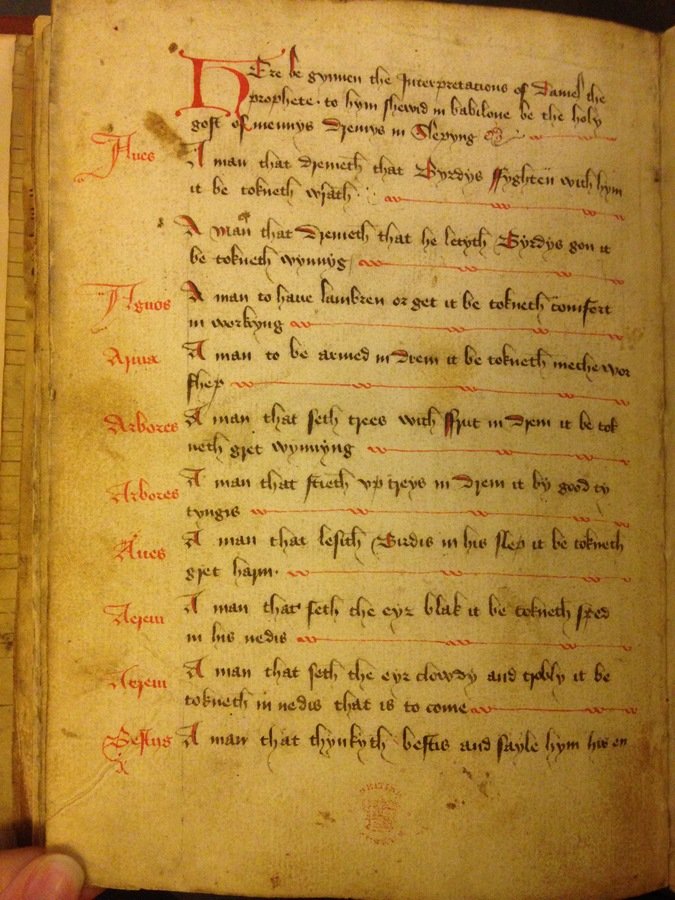 HEre be gynnen the Interpretacions of Daniel the
prophete. to hym shewid in babilone be the holy
gost of mennys Dremys in Slepyng
Aues
A man that Dremeth that Byrdys ffyghten with hym
it be tokneth wrath
A man that Dremeth that he letyth Byrdys gon it
be tokneth wynnyg
Agnos
A man to haue lambren or get it be tokneth comfort
in workyng
Arma
A man to be armed in Drem it be tokneth meche wor
shep
Arbores
A man that seth trees with ffrut in Drem it be tok
neth gret wynnyng
Arbores
A man that stieth vp treys in Drem it by good ty
tyngis
Aues
A man that lesith Birdis in his slep it be tokneth
gret harm.
Aerem
A man that seth the eyr blak it be tokneth sped
in his nedis
Aerem
A man that seth the eyr clowdy and trobly it be
tokneth in nedis that is to come
Bestias
A man that thynkyth bestis and sayle hym his en